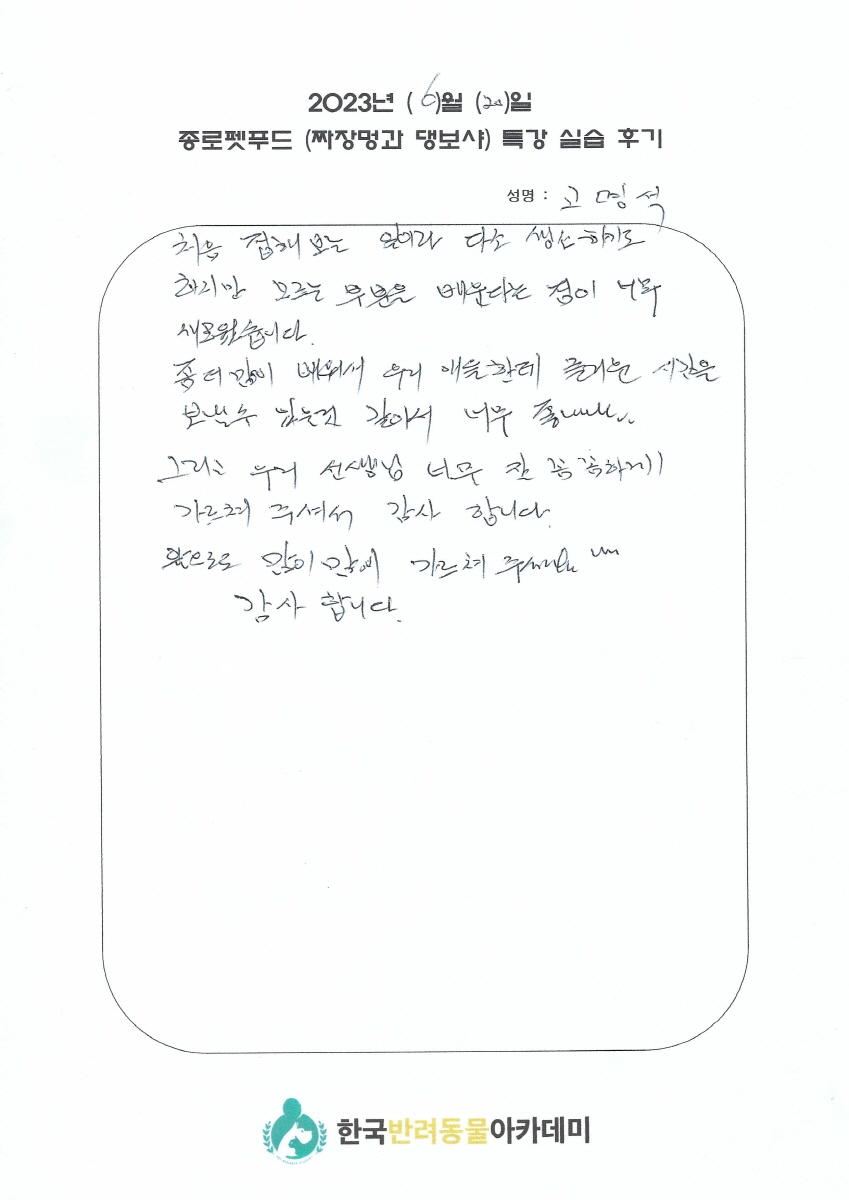 2023년 (6)월 (20)일
종로펫푸드 (짜장멍과 댕보샤) 특강 실습 후기
성명 : 고명석
처음 접해 보는 일이라 다소 생소하기도
하지만 모르는 부분을 배운다는 점이 너무
새로웠습니다.
좀더 많이 배워서 우리 애들한테 즐거운 시간을
보낼수 있는것 같아서 너무
그리고 우리 선생님 너무 잘 꼼꼼하게
가르쳐 주셔서 감사 합니다.
앞으로도 많이 많이 가르쳐
감사 합니다.
한국반려동물아카데미